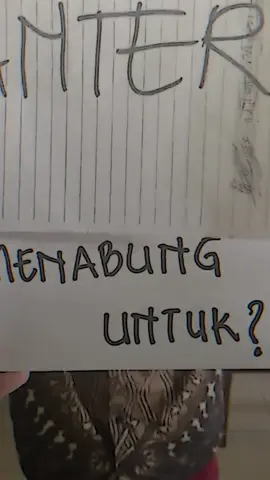 ANTER
MENABUNG
UNTUK?